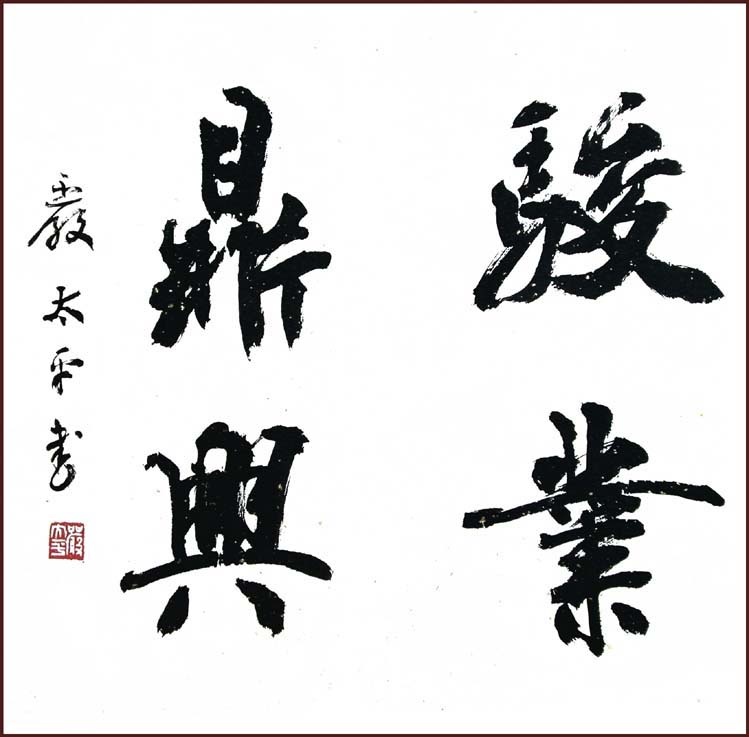 駿業
鼎興
嚴太平書